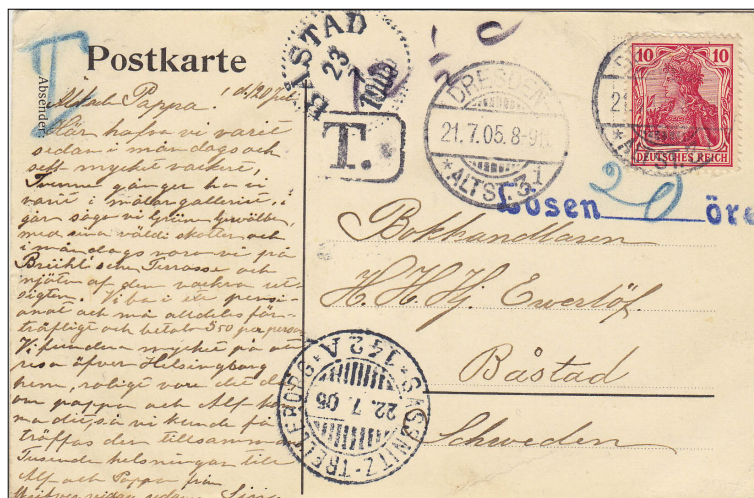 Postkarte
Absender
Älskade Pappa! d. 20 Juli
Här hafva vi varit
sedan i måndags och
sett mycket vackert,
Tvenne gånger ha vi
varit i målargalleriet, i
går sågo vi Grüne Gewölbe,
med sina väldi skatter och
i måndags voro vi på
Brühl'sche Terrasse och
njöto af den vackra ut-
sigten. Vi bo i ett pensi-
onat och må alldeles för-
träffligt och betala 350 per person
Vi fundera mycket på att
resa öfver Helsingborg
hem, roligt vore det då
om pappa och Alf
så vi kunde få
träffas der tillsamma
Tusende helsningar till
Alf och Pappa från
BÅSTAD
23
7
1905
T.
DRESDEN
21.7.05.8-9V.
*ALTST.3.
1
10 10
DEUTSCHES REICH
21.
Lösen 20 öre
Bokhandlaren
H. H. Hj. Ewerlöf.
Båstad
Schweden
SASSNITZ-TRELLEBORG
142 A
22.7.05